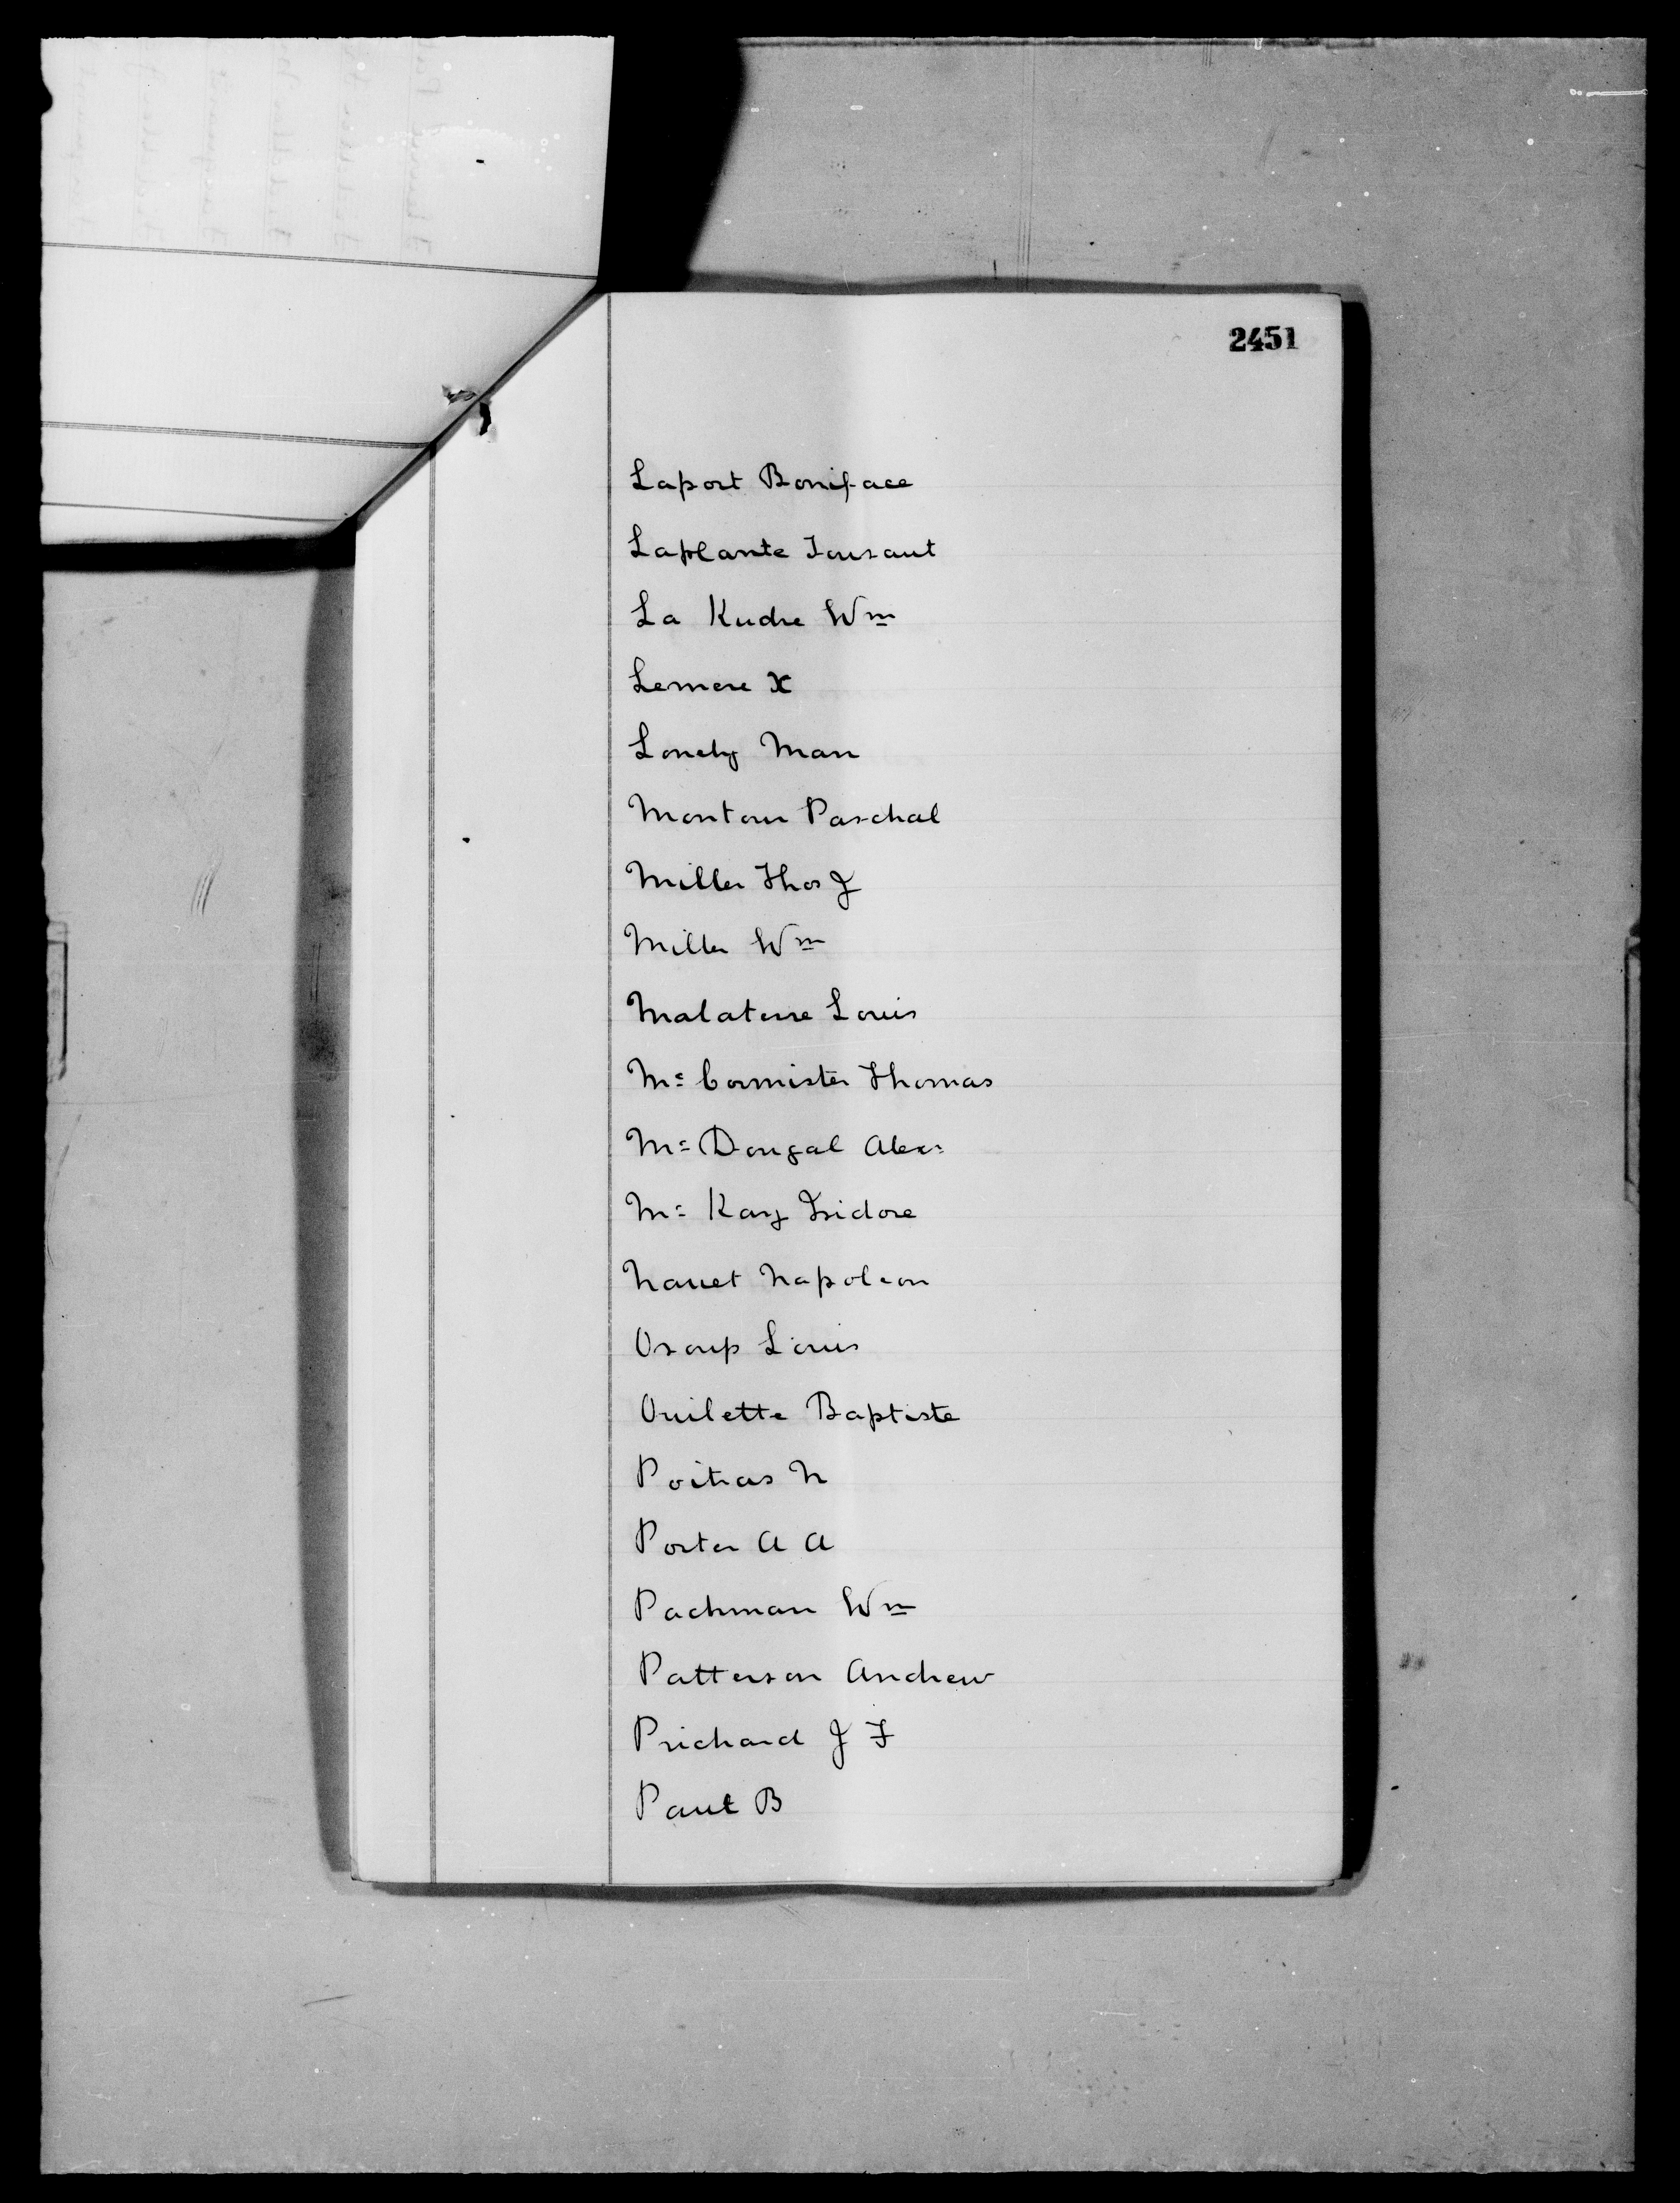 2451
Laport Boniface
Laplante Tousaut
La Kudre Wm
Lemere X
Lonely Man
Montour Paschal
Miller Thos J
Miller Wm
Malaterre Louis
Mc Cormister Thomas
Mc Dougal Alex
Mc Kay Isidore
Napoleon
Osoup Louis
Ouilette Baptiste
Poitras N
Porter A A
Pachman Wm
Patterson Andrew
Prichard J F
Paul B